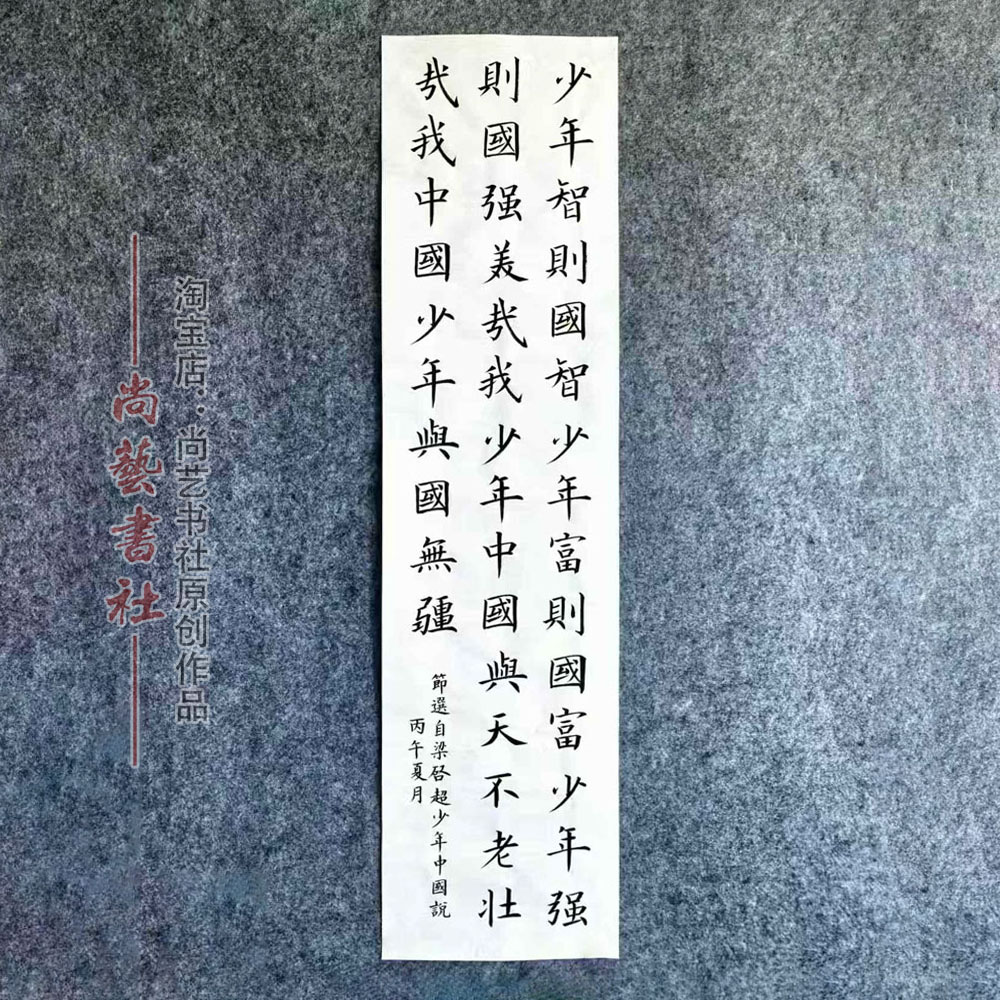 少年智則國智少年富則國富少年强
則國强美哉我少年中國與天不老壯
哉我中國少年與國無疆
節選自梁啓超少年中國說
丙午夏月
淘宝店：尚艺书社原创作品
尚藝書社